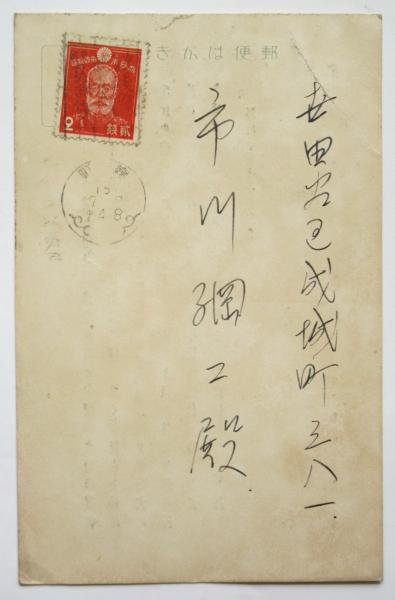 郵便はかき
世田谷区成城町三八一
市川綱二殿
大日本帝国郵便
2 銭 貳